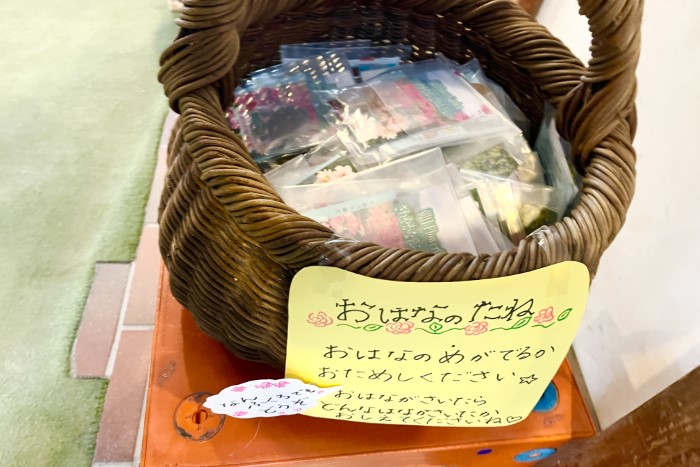 おはなのたね
おはなのめがでるか
おためしください☆
おはながさいたら
どんなはながさいたか
おしえてくださいね♡